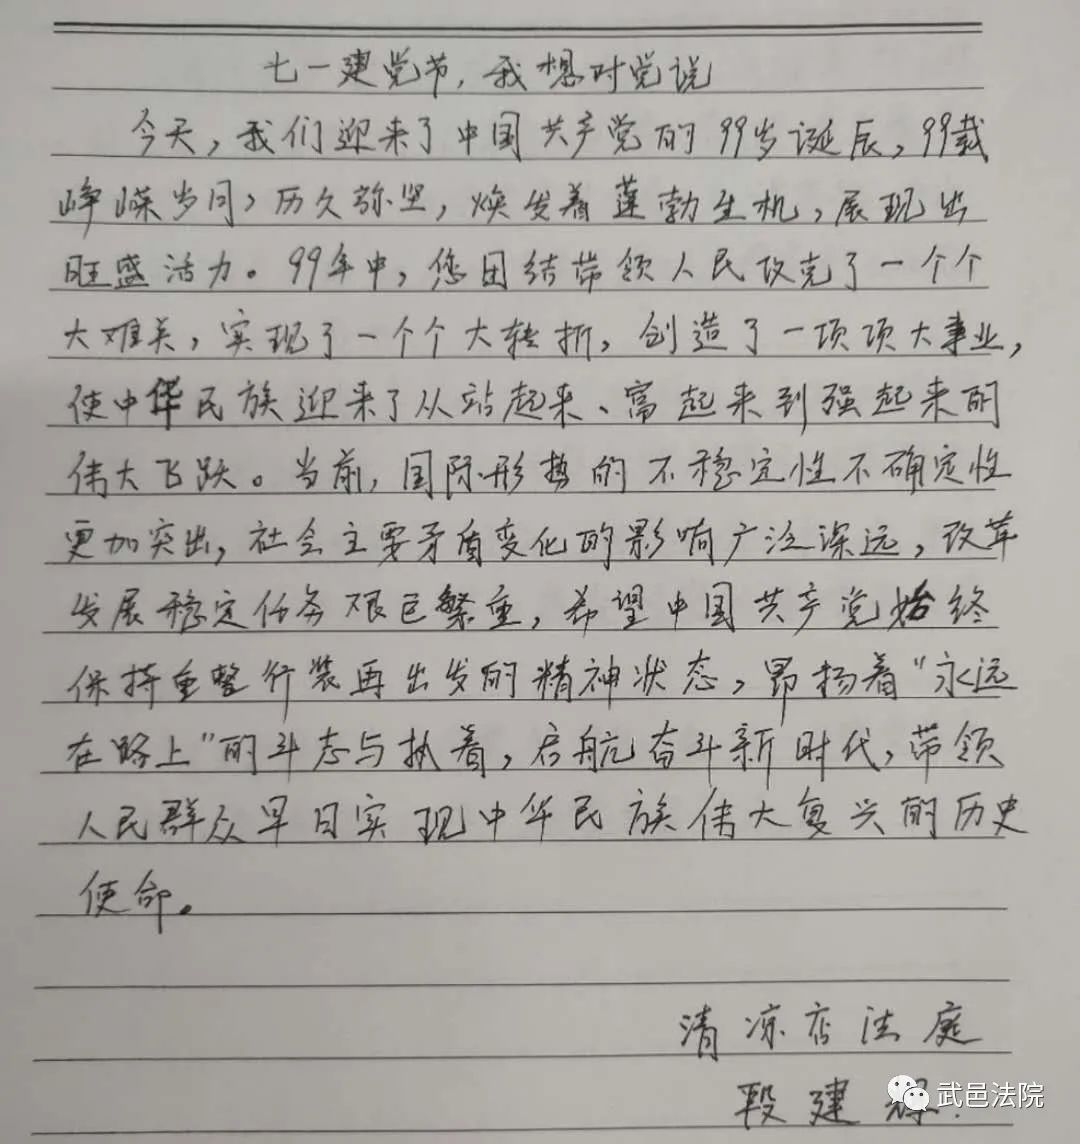 七一建党节，我想对党说
今天，我们迎来了中国共产党的99岁诞辰，99载
峥嵘岁月，历久弥坚，焕发着蓬勃生机，展现出
旺盛活力。99年中，您团结带领人民攻克了一个个
大难关，实现了一个个大转折，创造了一项项大事业，
使中华民族迎来了从站起来、富起来到强起来的
伟大飞跃。当前，国际形势的不稳定性不确定性
更加突出，社会主要矛盾变化的影响广泛深远，改革
发展稳定任务艰巨繁重，希望中国共产党始终
保持重整行装再出发的精神状态，昂扬着“永远
在路上”的斗志与执着，启航奋斗新时代，带领
人民群众早日实现中华民族伟大复兴的历史
使命。
清凉店法庭
段建
武邑法院